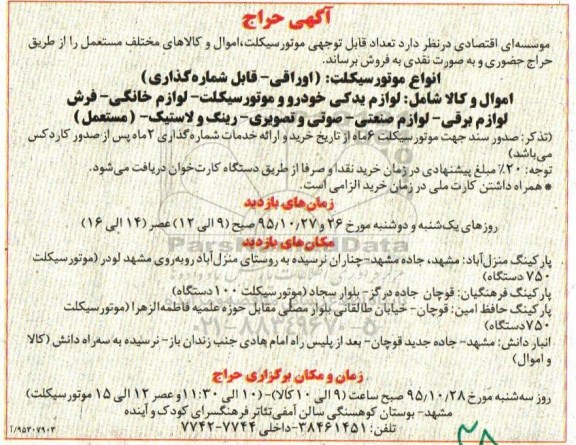 آگهی حراج
موسسه‌ای اقتصادی درنظر دارد تعداد قابل توجهی موتورسیکلت،اموال و کالاهای مختلف مستعمل را از طریق
حراج حضوری و به صورت نقدی به فروش برساند.
انواع موتورسیکلت: (اوراقی- قابل شماره‌گذاری)
اموال و کالا شامل: لوازم یدکی خودرو و موتورسیکلت- لوازم خانگی- فرش
لوازم برقی- لوازم صنعتی- صوتی و تصویری- رینگ و لاستیک- (مستعمل)
(تذکر: صدور سند جهت موتورسیکلت ۶ماه از تاریخ خرید و ارائه خدمات شماره‌گذاری ۲ماه پس از صدور کاردکس
می‌باشد)
توجه: ۲۰٪ مبلغ پیشنهادی در زمان خرید نقدا و صرفا از طریق دستگاه کارت‌خوان دریافت می‌شود.
* همراه داشتن کارت ملی در زمان خرید الزامی است.
زمان‌های بازدید
روزهای یک‌شنبه و دوشنبه مورخ ۲۶ و ۹۵/۱۰/۲۷ صبح (۹ الی ۱۲) عصر (۱۴ الی ۱۶)
مکان‌های بازدید
پارکینگ منزل‌آباد: مشهد، جاده مشهد-چناران نرسیده به روستای منزل‌آباد روبه‌روی مشهد لودر (موتورسیکلت
۷۵۰ دستگاه)
پارکینگ فرهنگیان: قوچان جاده درگز- بلوار سجاد (موتورسیکلت ۱۰۰ دستگاه)
پارکینگ حافظ امین: قوچان- خیابان طالقانی بلوار مصلی مقابل حوزه علمیه فاطمه‌الزهرا (موتورسیکلت
۷۵۰دستگاه)
انبار دانش: مشهد- جاده جدید قوچان- بعد از پلیس راه امام هادی جنب زندان باز- نرسیده به سه‌راه دانش (کالا
و اموال)
زمان و مکان برگزاری حراج
روز سه‌شنبه مورخ ۹۵/۱۰/۲۸ صبح ساعت (۹ الی ۱۰ کالا)- (۱۰ الی ۱۱:۳۰ و عصر ۱۲ الی ۱۵ موتورسیکلت)
مشهد- بوستان کوهسنگی سالن آمفی‌تئاتر فرهنگسرای کودک و آینده
تلفن: ۳۸۴۶۱۴۵۱-داخلی ۷۷۴۴-۷۷۴۲
/۹۵۳۰۷۹۰۳
ParsNamadData
۰۲۱-۸۸۳۴۹۶۷۰-۵